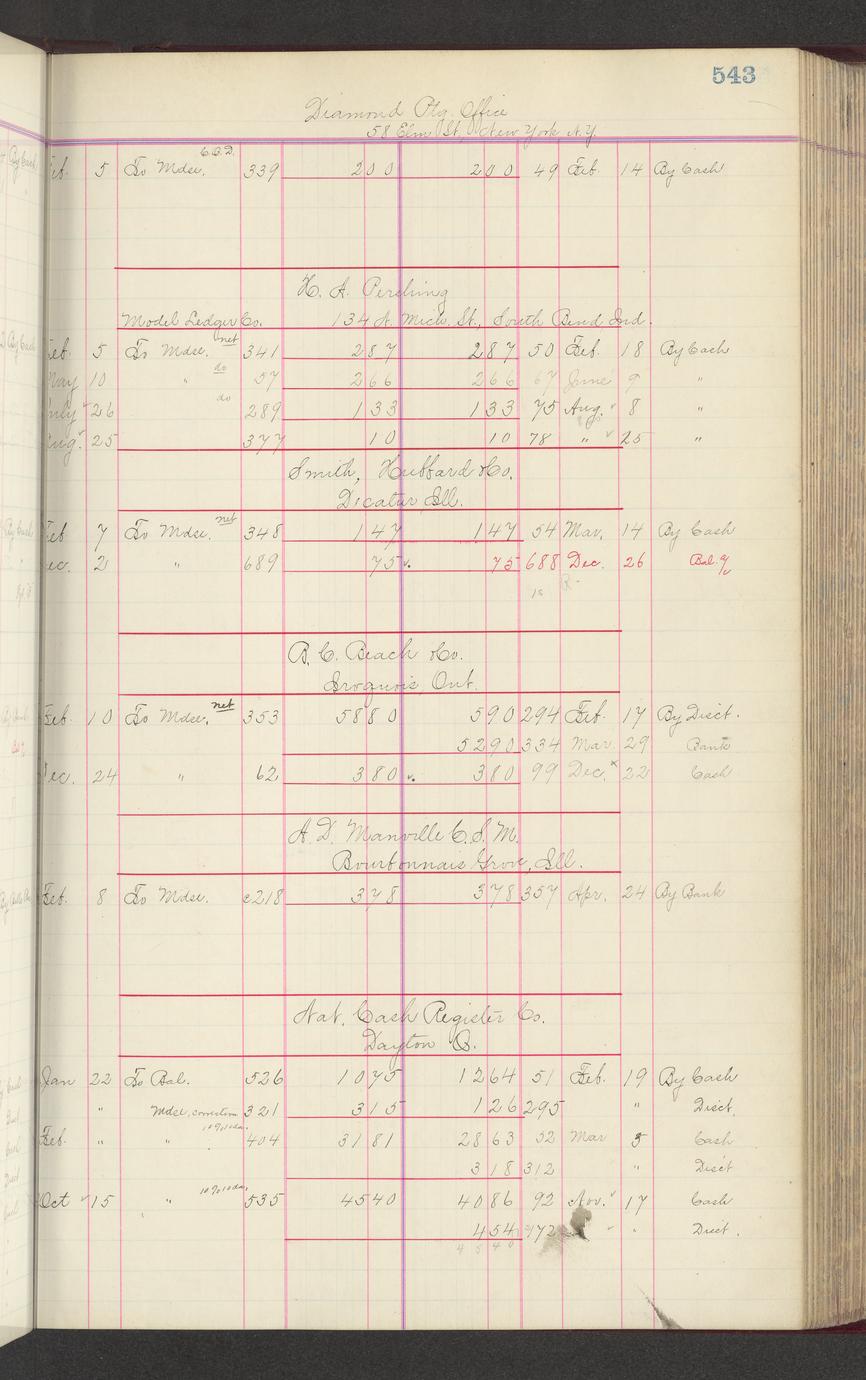 543
Diamond Ptg. Office
58 Elm St. New York N.Y.
C.O.D.
Feb. 5 To Mdse. 339 200 200 49 Feb. 14 By Cash
H. A. Pershing
Model Ledger Co. 134 N. Mich. St., South Bend Ind.
Feb. 5 To Mdse. net 341 287 287 50 Feb. 18 By Cash
May 10 " do 57 266 266 67 June 9 "
July 26 do 289 133 133 75 Aug. 8 "
Aug. 25 377 10 10 78 " 25 "
Smith, Hubbard & Co.
Dicatur, Ill.
Feb 7 To Mdse. net 348 147 147 54 Mar. 14 By Cash
Dec. 2 " 689 75 75 688 Dec. 26 Bal. %
B. C. Beach & Co.
Iroquois, Ont.
Feb. 10 To Mdse. net 353 5880 590 294 Feb. 17 By Disct.
5290 334 Mar. 29 Bank
Dec. 24 " 62 380 380 99 Dec. 22 Cash
A. D. Manville C.S.M.
Bourbonnais Grove, Ill.
Feb. 8 To Mdse. c218 378 378 357 Apr. 24 By Bank
Nat. Cash Register Co.
Dayton O.
Jan 22 To Bal. 526 1075 1264 51 Feb. 19 By Cash
" Mdse, correction 321 315 126 295 " Disct.
Feb. " " 10% 10 da. 404 3181 2863 52 Mar 5 Cash
318 312 " Disct
Oct 15 " 10% 10 da. 535 4540 4086 92 Nov. 17 Cash
454 972 " Disct.
4540